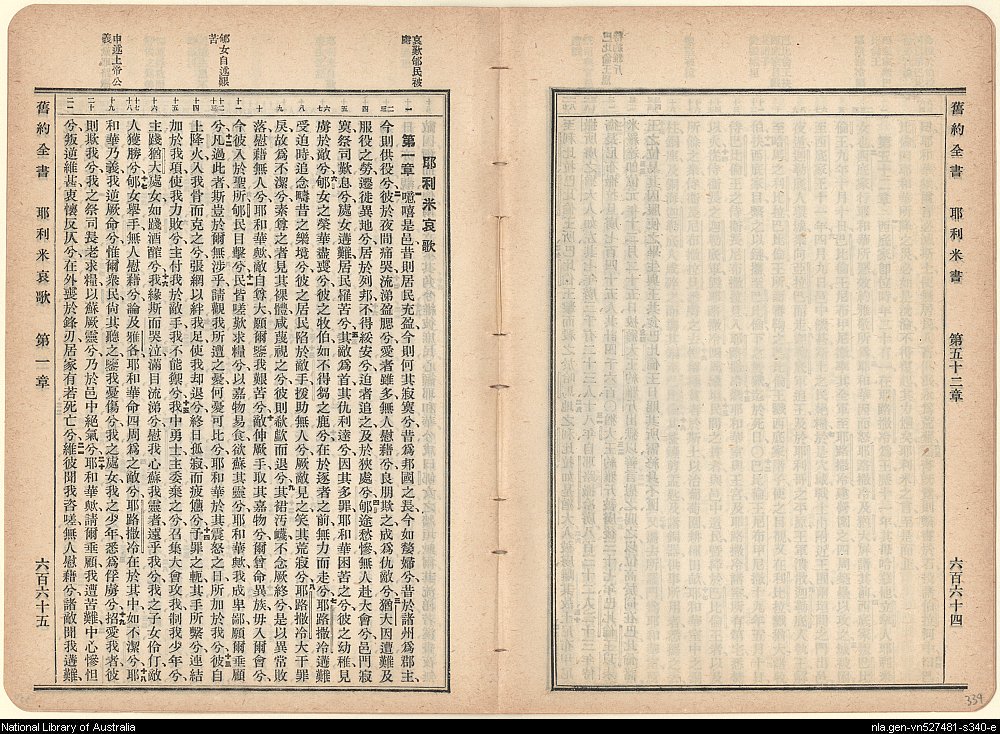 舊約全書　耶利米書　第五十二章　六百六十四
哀歎郇民被虜
郇女自述艱苦
申述上帝公義
耶利米哀歌
第一章 噫嘻是邑昔則居民充盈今則何其寂寞兮昔爲邦國之長今如嫠婦兮昔於諸州爲郡主
今則供役兮彼於夜間痛哭流涕盈腮兮愛者雖多無人慰藉兮良朋欺之成爲仇敵兮猶大因遭難及
服役之勞遷徙異地兮居於列邦不得綏安兮迫者追之及於狹處兮郇途愁慘無人赴大會兮邑門寂
寞祭司歎息兮處女遘難居民罹苦兮其敵爲首其仇利達兮因其多罪耶和華困苦之兮彼之幼稚見
虜於敵兮郇女之榮華盡喪兮彼之牧伯如不得芻之鹿兮在於逐者之前無力而走兮耶路撒冷遘難
受迫時追念疇昔之樂境兮彼之居民陷於敵手援助無人兮厥敵見之笑其荒寂兮耶路撒冷大干罪
戾故爲不潔兮素尊之者見其裸體咸蔑視之兮彼則欷歔而退兮其裙汚衊不念厥終兮是以異常敗
落慰藉無人兮耶和華歟敵自尊大願爾鑒我艱苦兮敵伸厥手取其嘉物兮爾曾命異族毋入爾會兮
今彼入於聖所郇民目擊兮民皆嗟歎求糧兮以嘉物易食欲蘇其靈兮耶和華歟我成卑鄙願爾垂顧
兮凡過此者斯豈於爾無涉乎請觀我所遭之憂何憂可比兮耶和華於其震怒之日所加於我兮彼自
上降火入我骨而克之兮張網以絆我足使我却退兮終日孤寂而疲憊兮予罪之軛其手所繫兮連結
加於我項使我力敗兮主付我於敵手我不能禦兮我中勇士主委棄之兮召集大會攻我制我少年兮
主踐猶大處女如踐酒醡兮我緣斯而哭泣滿目流涕兮慰我心蘇我靈者遠乎我兮我之子女伶仃敵
人獲勝兮郇女舉手無人慰藉兮論及雅各耶和華命四周爲之敵兮耶路撒冷在於其中如不潔兮耶
和華乃義我逆厥命兮惟爾衆民尙其聽之鑒我憂傷兮我之處女我之少年悉爲俘虜兮招愛我者彼
則欺我兮我之祭司長老求糧以蘇厥靈兮乃於邑中絕氣兮耶和華歟請爾垂顧我遭苦難中心慘怛
兮叛逆維甚衷懷反仄兮在外喪於鋒刃居家有若死亡兮維彼聞我咨嗟無人慰藉兮諸敵聞我遘難
舊約全書　耶利米哀歌　第一章　六百六十五
339
National Library of Australia
nla.gen-vn527481-s340-e